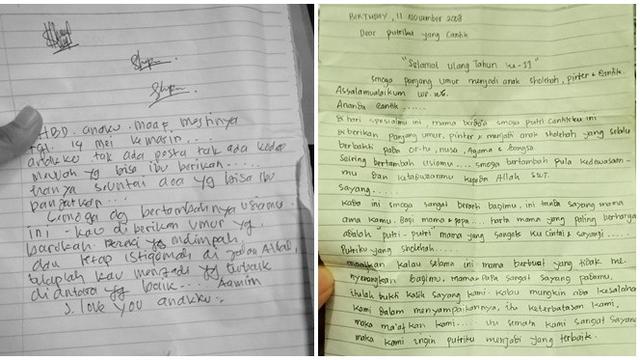 HBD. anakku. maaf mestinya
tgl. 14 mei kemarin...
anakku tak ada pesta tak ada kado
mewah yg bisa ibu berikan.....
hanya seuntai doa yg bisa ibu
panjatkan...
Semoga dg bertambahnya usiamu
ini - kau di berikan umur yg.
barokah rezeki yg melimpah,
dan tetap istiqomah di jalan Allah,
tetaplah kau menjadi yg terbaik
di antara yg baik... Aamiin
I love you anakku.
BIRTHDAY, 11 November 2008
Dear putriku yang Cantik
"Selamat Ulang Tahun ke-11"
Smoga panjang umur menjadi anak sholehah, pinter & cantik.
Assalamualaikum wr. wb.
Ananda cantik.......
Di hari spesialmu ini, mama berdo'a smoga putri cantikku ini
di berikan panjang umur, pinter & menjadi anak sholehah yang selalu
berbakti pada or-tu, nusa, Agama & bangsa.
Seiring bertambah usiamu.... smoga bertambah pula kedewasaan-
mu dan ketaqwaanmu kepada Allah SWT.
Sayang.....
kado ini smoga sangat berarti bagimu, ini tanda sayang mama
ama kamu. Bagi mama & papa.... harta mama yang paling berharga
adalah putri-putri mama yang sangat ku cintai & sayangi.....
Putriku yang sholehah....
maafkan kalau selama ini mama berbuat yang tidak me-
nyenangkan bagimu. mama papa sangat sayang padamu,
itulah bukti kasih sayang kami. kalau mungkin ada kesalahan
kami dalam menyampaikannya, itu keterbatasan kami,
maka ma'afkan kami..... itu semata kami sangat sayang
maka kami ingin putriku menjadi yang terbaik.